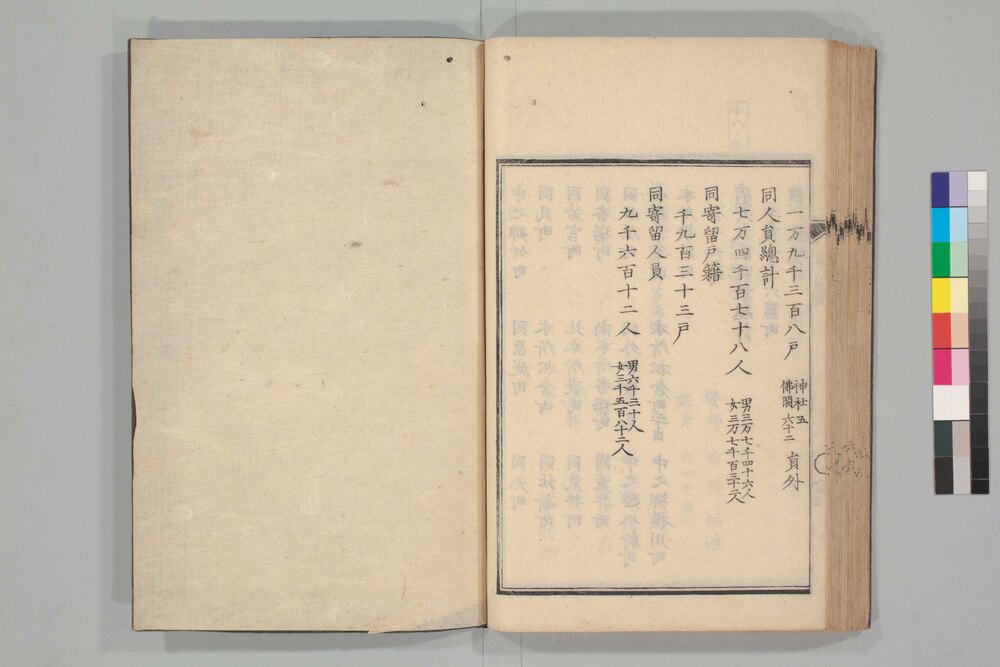 一万九千三百八戸 神社五 佛閣六十二 員外
同人員總計
七万四千百七十八人 男三万七千四十六人 女三万七千百三十二人
同寄留戸籍
千九百三十三戸
同寄留人員
九千六百十二人 男六千三十人 女三千五百八十二人